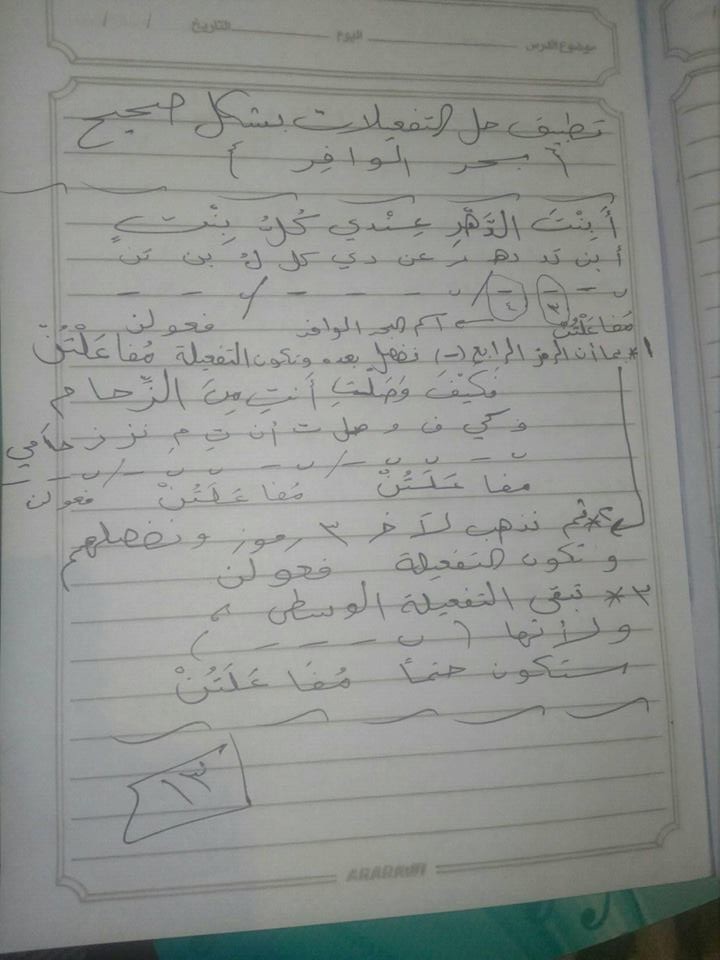 موضوع الدرس ــــــــ اليوم ــــــــ التاريخ / /
تطبيق حل التفعيلات بشكل صحيح
{ بحر الوافر }
أَبِنْتَ الدَّهْرِ عِنْدي كُلُّ بِنْتٍ
أ بن تد دهـ ر عن دي كل لُ بن تن
ب - - - / ب - - - / ب - -
٣ ٤
مُفاعَلْتُنْ ← اسم البحر الوافر فعولن
١* بما أن الرمز الرابع (-) نفصل بعده وتكون التفعيلة مُفاعَلْتُنْ
فَكَيْفَ وَصَلْتِ أَنتِ مِنَ الزِّحامِ
ف كي ف و صل ت أن تِ مِ نز ز حا مي
ب - ب ب - / ب - ب ب - / ب - -
مفاعَلَتُنْ مُفاعَلَتُنْ فعولن
٢* ثم نذهب لآخر ٣ رموز ونفصلهم
وتكون التفعيلة فعولن
٣* تبقى التفعيلة الوسطى
ولأنها ( ب - - - )
ستكون حتماً مُفَاعَلَتُنْ
١٣
ARARAWI